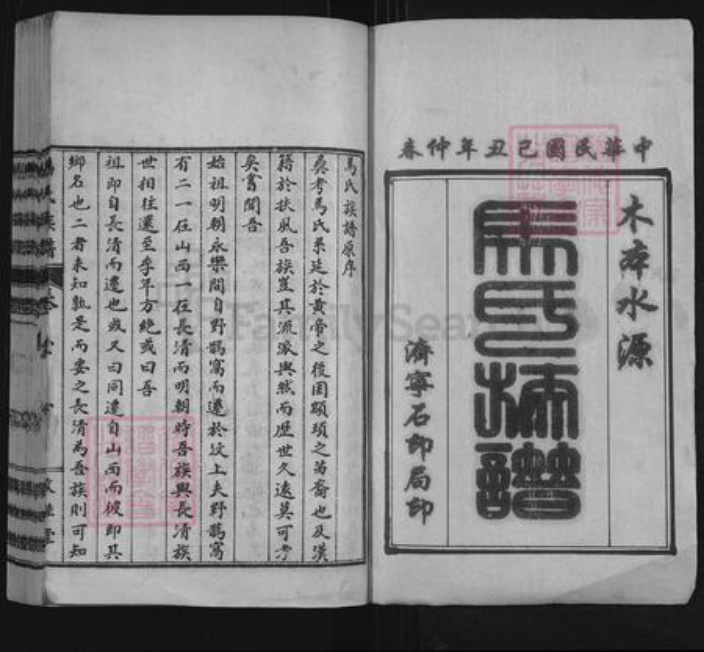 中華民國己丑年仲春
木本水源
馬氏族譜
濟寧石印局印
馬氏族譜原序
奠考馬氏系廷於黄帝之後因顓頊之苗裔也及漢
籍於扶風吾族豈其流派與然而歷世久遠莫可考
矣嘗聞吾
始祖明朝永樂間自野鵲窩而遷於汶上夫野鵲窩
有二一在山西一在長清而明朝時吾族與長清族
世相往還至季年方絶或曰吾
祖即自長清而遷也或又曰同遷自山西而彼即其
鄉名也二者未知孰是而要之長清為吾族則可知
FamilySearch